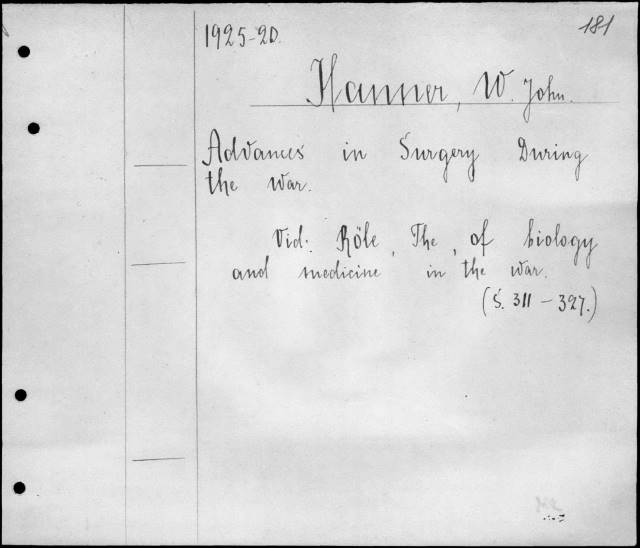 1925-20.
181
Hanner, W. John.
Advances in Surgery During
the war.
Vid: Röle, The, of biology
and medicine in the war.
(S. 311 - 327.)